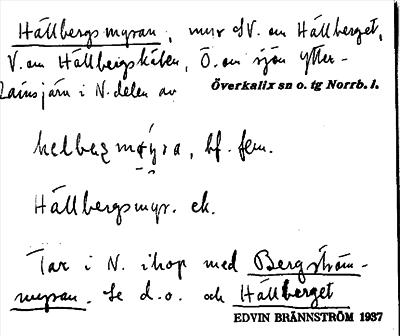 Hällbergsmyran, myr SV. om Hällberget,
V. om Hällbergskälen, Ö. om sjön Ytter-
Lainsjärv i N. delen av Överkalix sn o. tg Norrb. l.
bf. fem.
Hällbergsmyr. ek.
Tar i N. ihop med Bergström-
myran. Se d.o. och Hällberget
EDVIN BRÄNNSTRÖM 1937